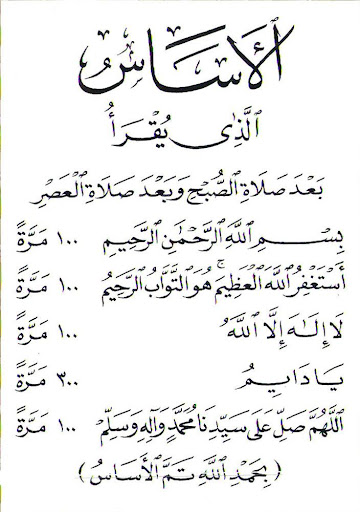 ٱلْأَسَاسُ
ٱلَّذِى يُقْرَأُ
بَعْدَ صَلَاةِ ٱلصُّبْحِ وَبَعْدَ صَلَاةِ ٱلْعَصْرِ
بِسْمِ ٱللَّهِ ٱلرَّحْمَٰنِ ٱلرَّحِيمِ ١٠٠ مَرَّةً
أَسْتَغْفِرُ ٱللَّهَ ٱلْعَظِيمَ ۚ هُوَ ٱلتَّوَّابُ ٱلرَّحِيمُ ١٠٠ مَرَّةً
لَا إِلَٰهَ إِلَّا ٱللَّهُ ١٠٠ مَرَّةً
يَا دَايِمُ ٣٠٠ مَرَّةً
ٱللَّهُمَّ صَلِّ عَلَى سَيِّدِنَا مُحَمَّدٍ وَآلِهِ وَسَلِّمْ ١٠٠ مَرَّةً
(بِحَمْدِ ٱللَّهِ تَمَّ ٱلْأَسَاسُ)